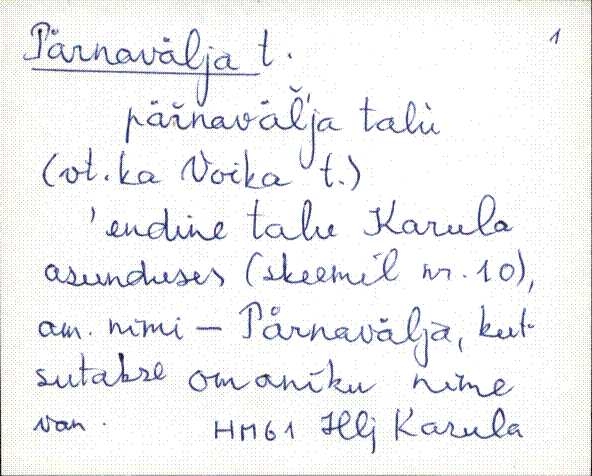 Pärnavälja t. 1
pärnaväĺja talù
(vt. ka Voika t.)
'endine talu Karula
asunduses (skeemil nr. 10),
am. nimi – Pärnavälja, kut-
sutakse omaniku nime
van. HM61 Hlj Karula